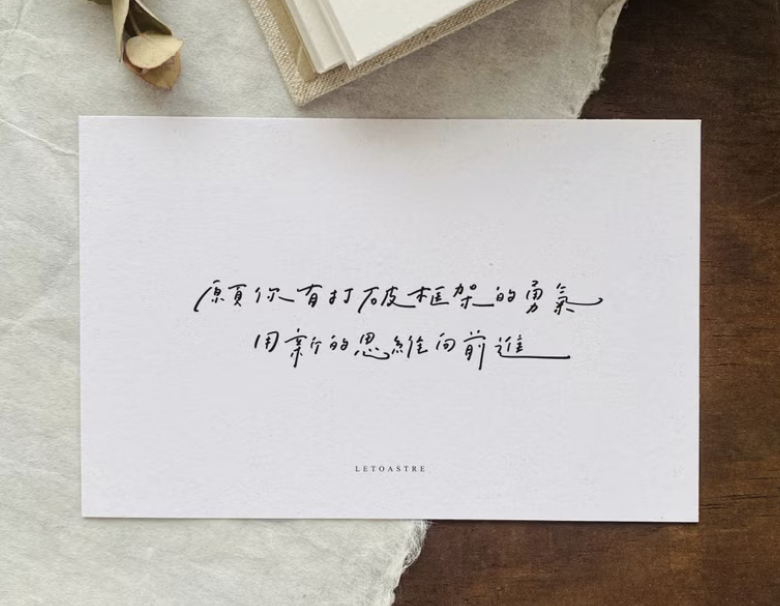 願你有打破框架的勇氣
用新的思維向前進
LETOASTRE